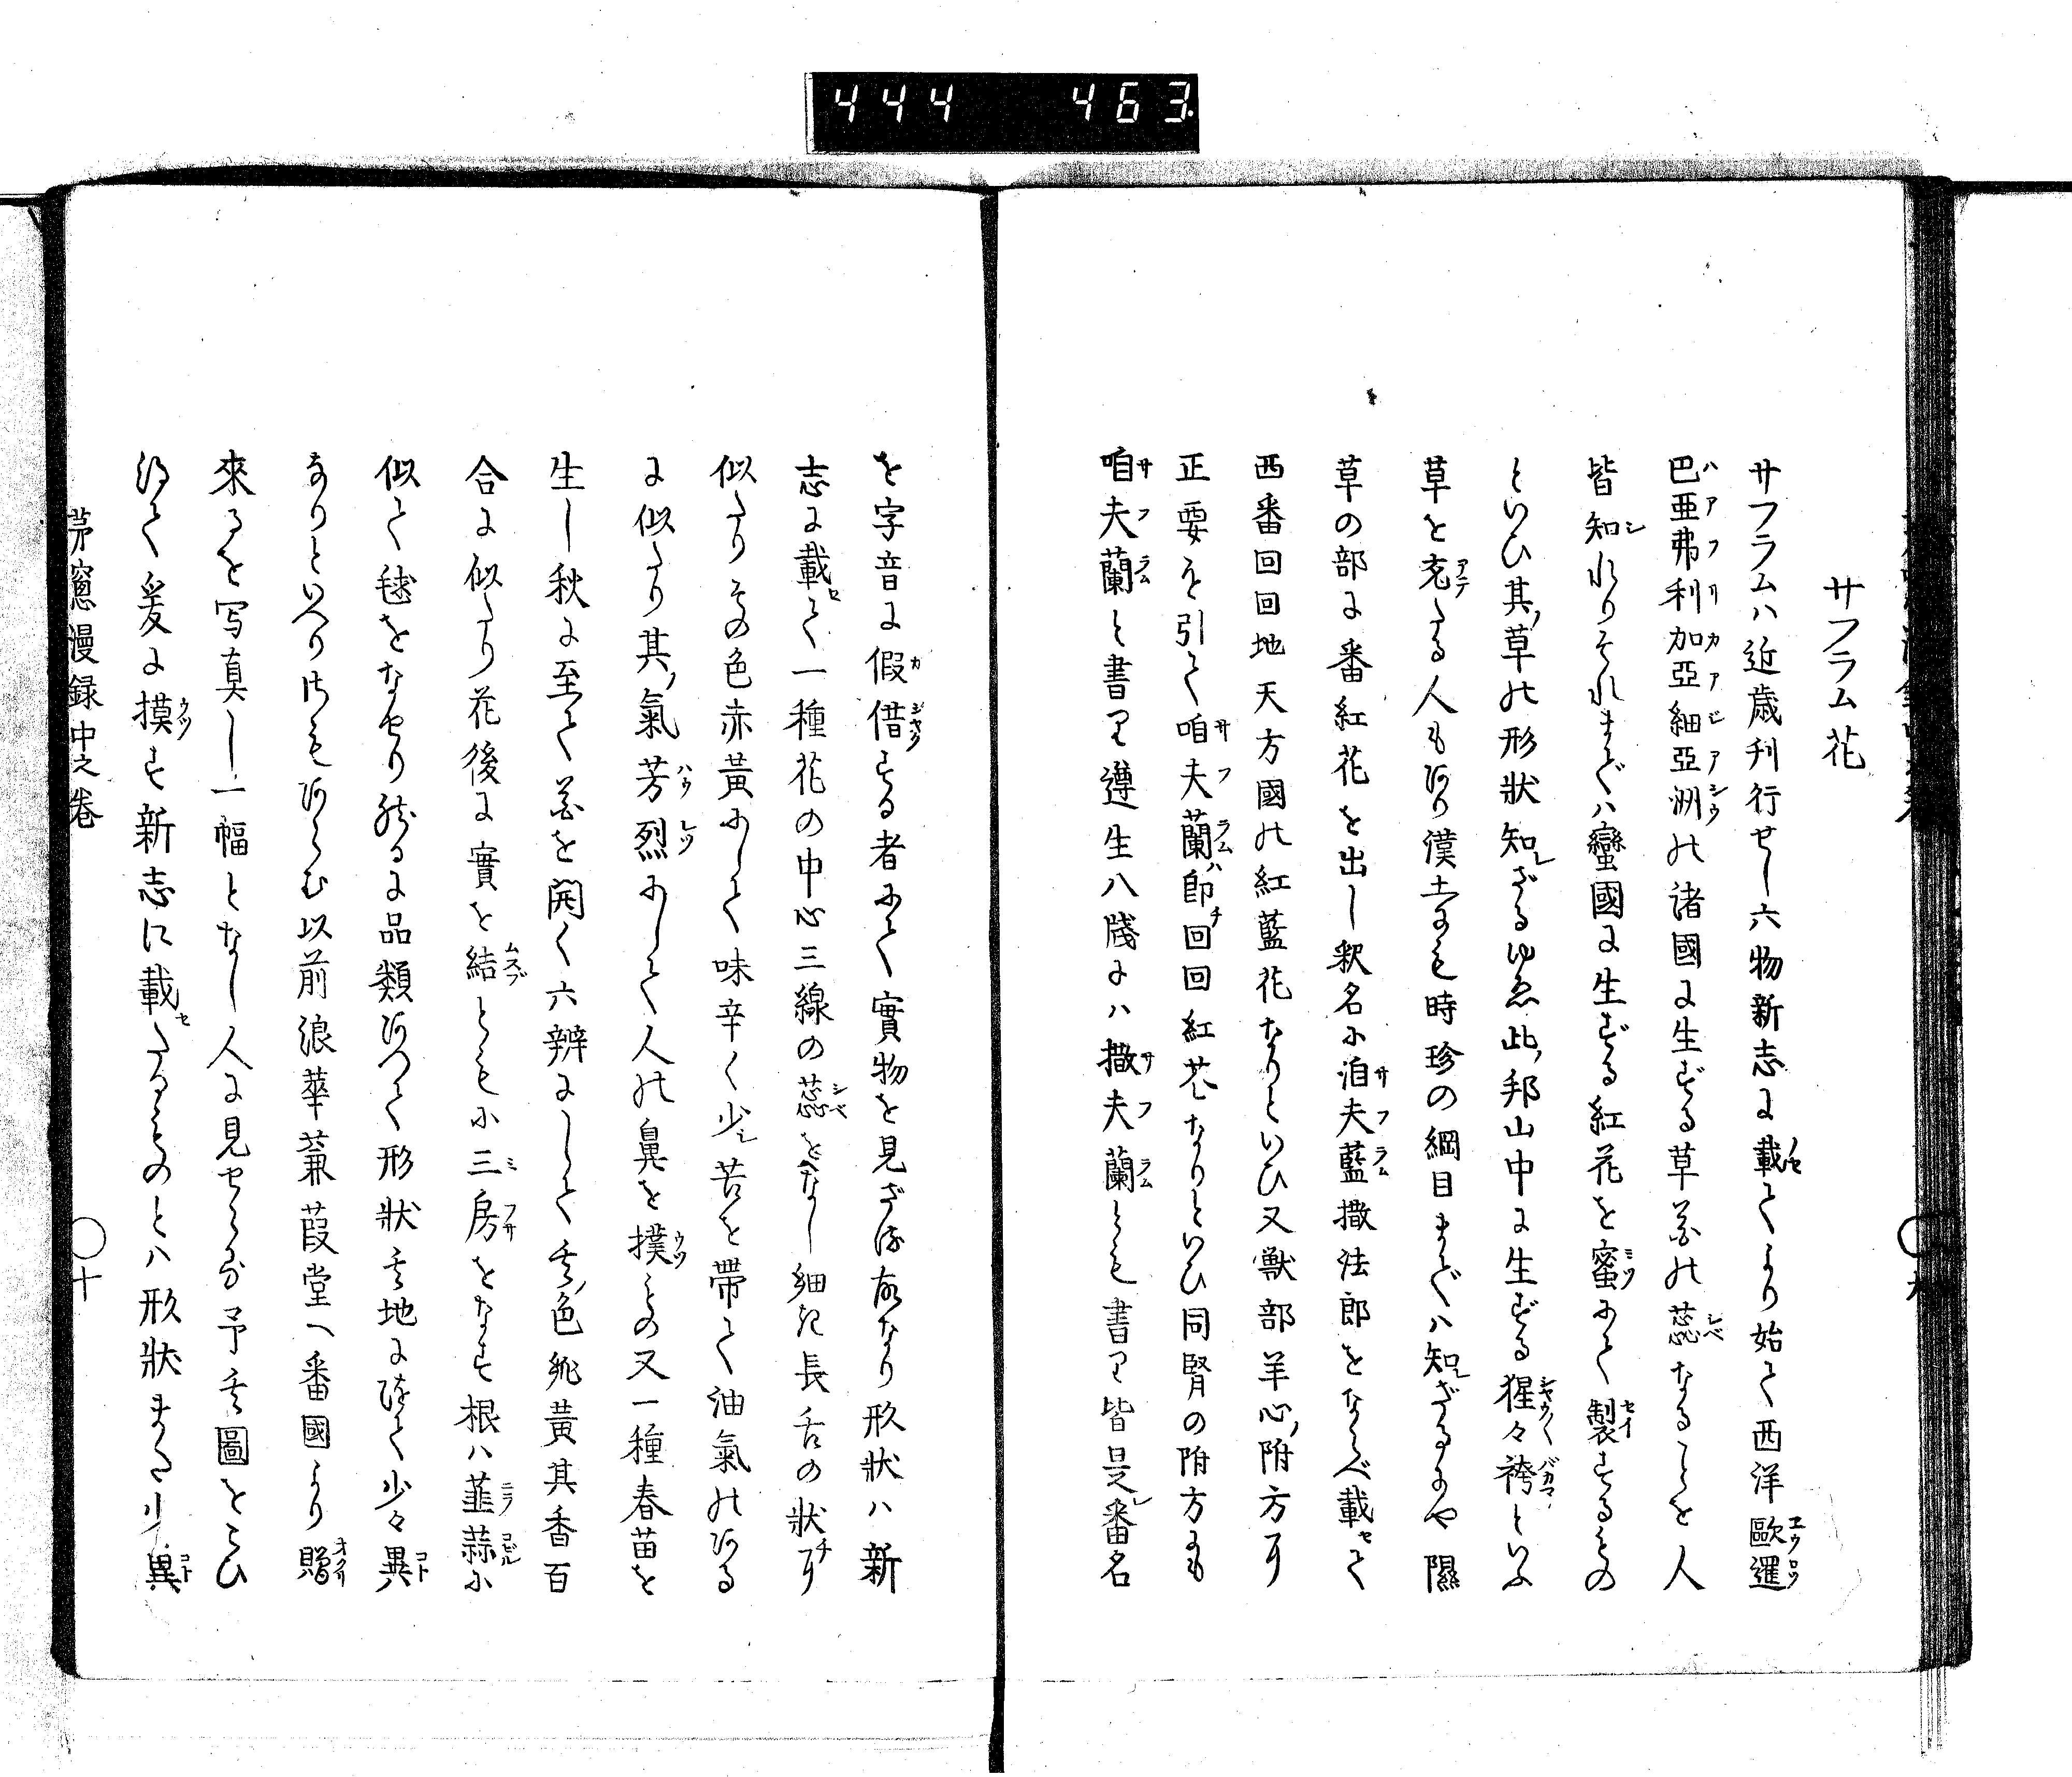 444 463
サフラム花
サフラムハ近歳刊行せし六物新志に載てより始て西洋歐邏
巴亜弗利加亞細亞洲の諸國に生ずる草花の蕊なることを人
皆知れりそれまでハ蠻國に生ずる紅花を蜜にて製するもの
といひ其草の形狀知ざるゆゑ此邦山中に生ずる猩々袴といふ
草を充たる人もあり漢土にても時珍の綱目までハ知ざるにや隰
草の部に番紅花を出し釈名に洎夫藍撒法郎をならべ載て
西番回回地天方國の紅藍花なりといひ又獸部羊心附方に
正要を引て咱夫蘭ハ即回回紅花なりといひ同腎の附方にも
咱夫蘭と書り遵生八牋にハ撒夫蘭とも書り皆是番名
を字音に假借する者にて實物を見ざる故なり形狀ハ新
志に載て一種花の中心三線の蕊をなし細く長舌の狀に
似たりその色赤黃にして味辛く少苦を帶て油氣のある
に似たり其氣芳烈にして人の鼻を撲もの又一種春苗を
生し秋に至て花を開く六辨にして其色純黃其香百
合に似たり花後に實を結ともに三房をなす根ハ韮蒜に
似て毬をなせり然るに品類ありて形狀其地に随て少々異
なりといへりさもあらむ以前浪華蒹葭堂へ番國より贈
來るを写真し一幅となし人に見せらる予其圖をこひ
得て爰に摸す新志に載たるものとハ形狀また少異
茅窻漫録中之卷
〇十